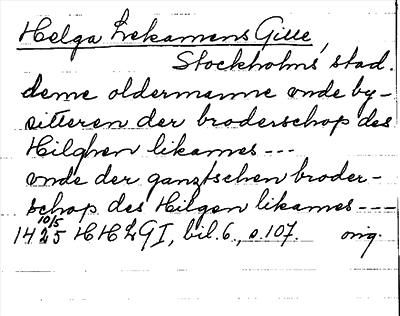 Helga Lekamens Gille,
Stockholms stad.
deme oldermanne vnde by-
sitteren der broderschop des
Hilghen likames ---
vnde der gantschen broder-
schop des Hilgen likames ---
10/5
1425 HHLG I, bil. 6, s. 107. orig.